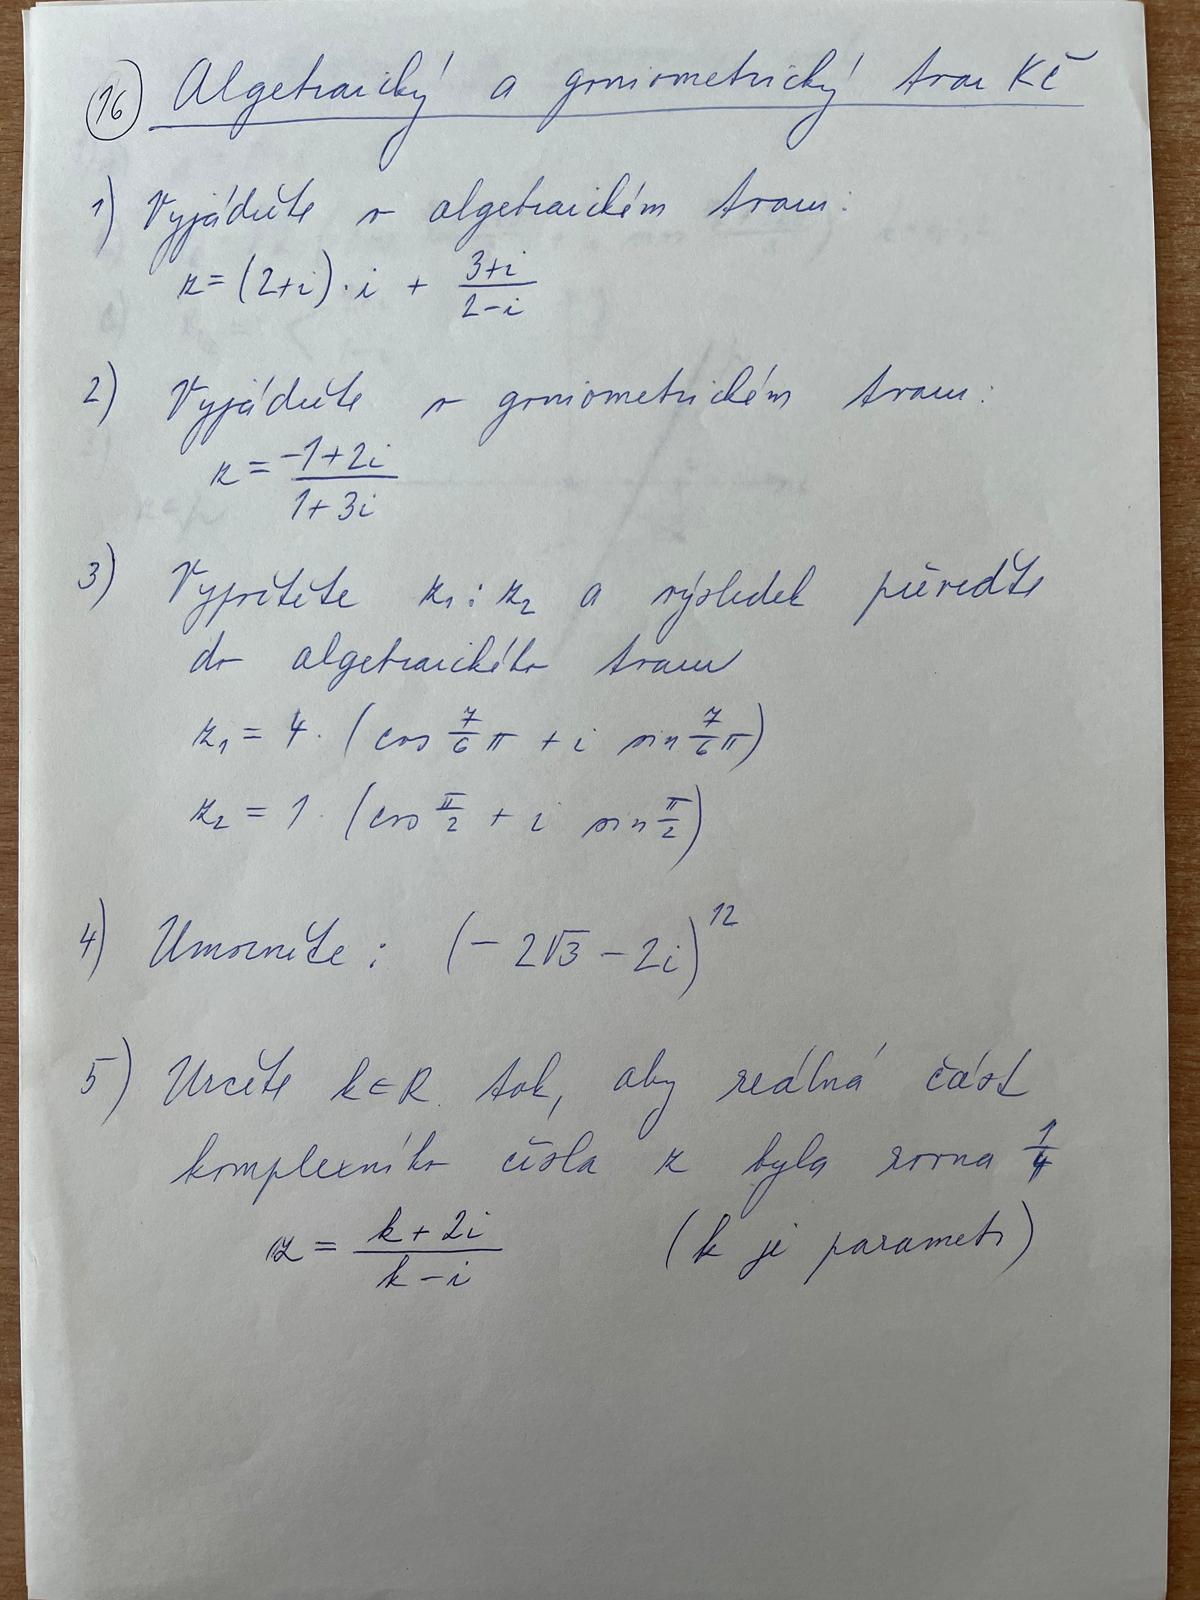 16 Algebraický a goniometrický tvar KČ
1) Vyjádřete v algebraickém tvaru:
z = (2+i) · i + \frac{3+i}{2-i}
2) Vyjádřete v goniometrickém tvaru:
z = \frac{-1+2i}{1+3i}
3) Vypočtěte z₁ : z₂ a výsledek převeďte
do algebraického tvaru
z₁ = 4 · (cos \frac{7}{6}π + i sin \frac{7}{6}π)
z₂ = 1 · (cos \frac{π}{2} + i sin \frac{π}{2})
4) Umocněte : (-2√3 - 2i)¹²
5) Určete k∈R tak, aby reálná část
komplexního čísla z byla rovna \frac{1}{4}
z = \frac{k+2i}{k-i} (k je parametr)